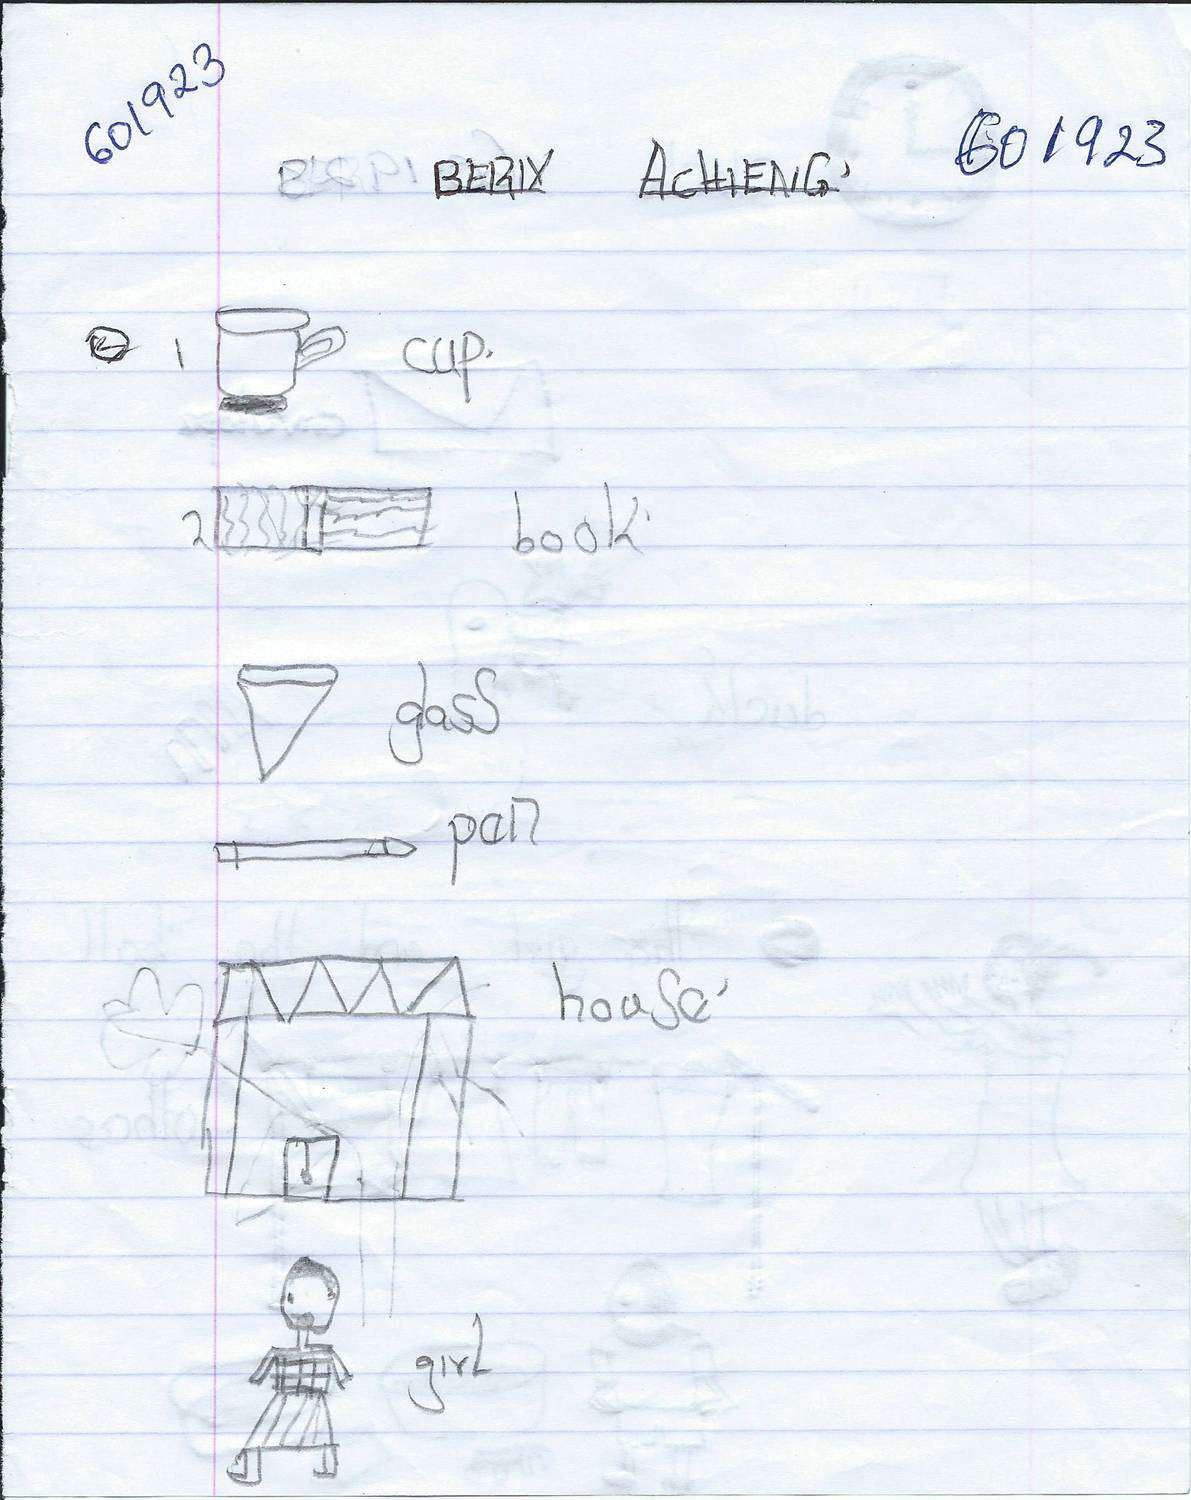 601923
601923
BERIX ACHIENG.
1 cup.
2 book.
glass
pen
house
girl